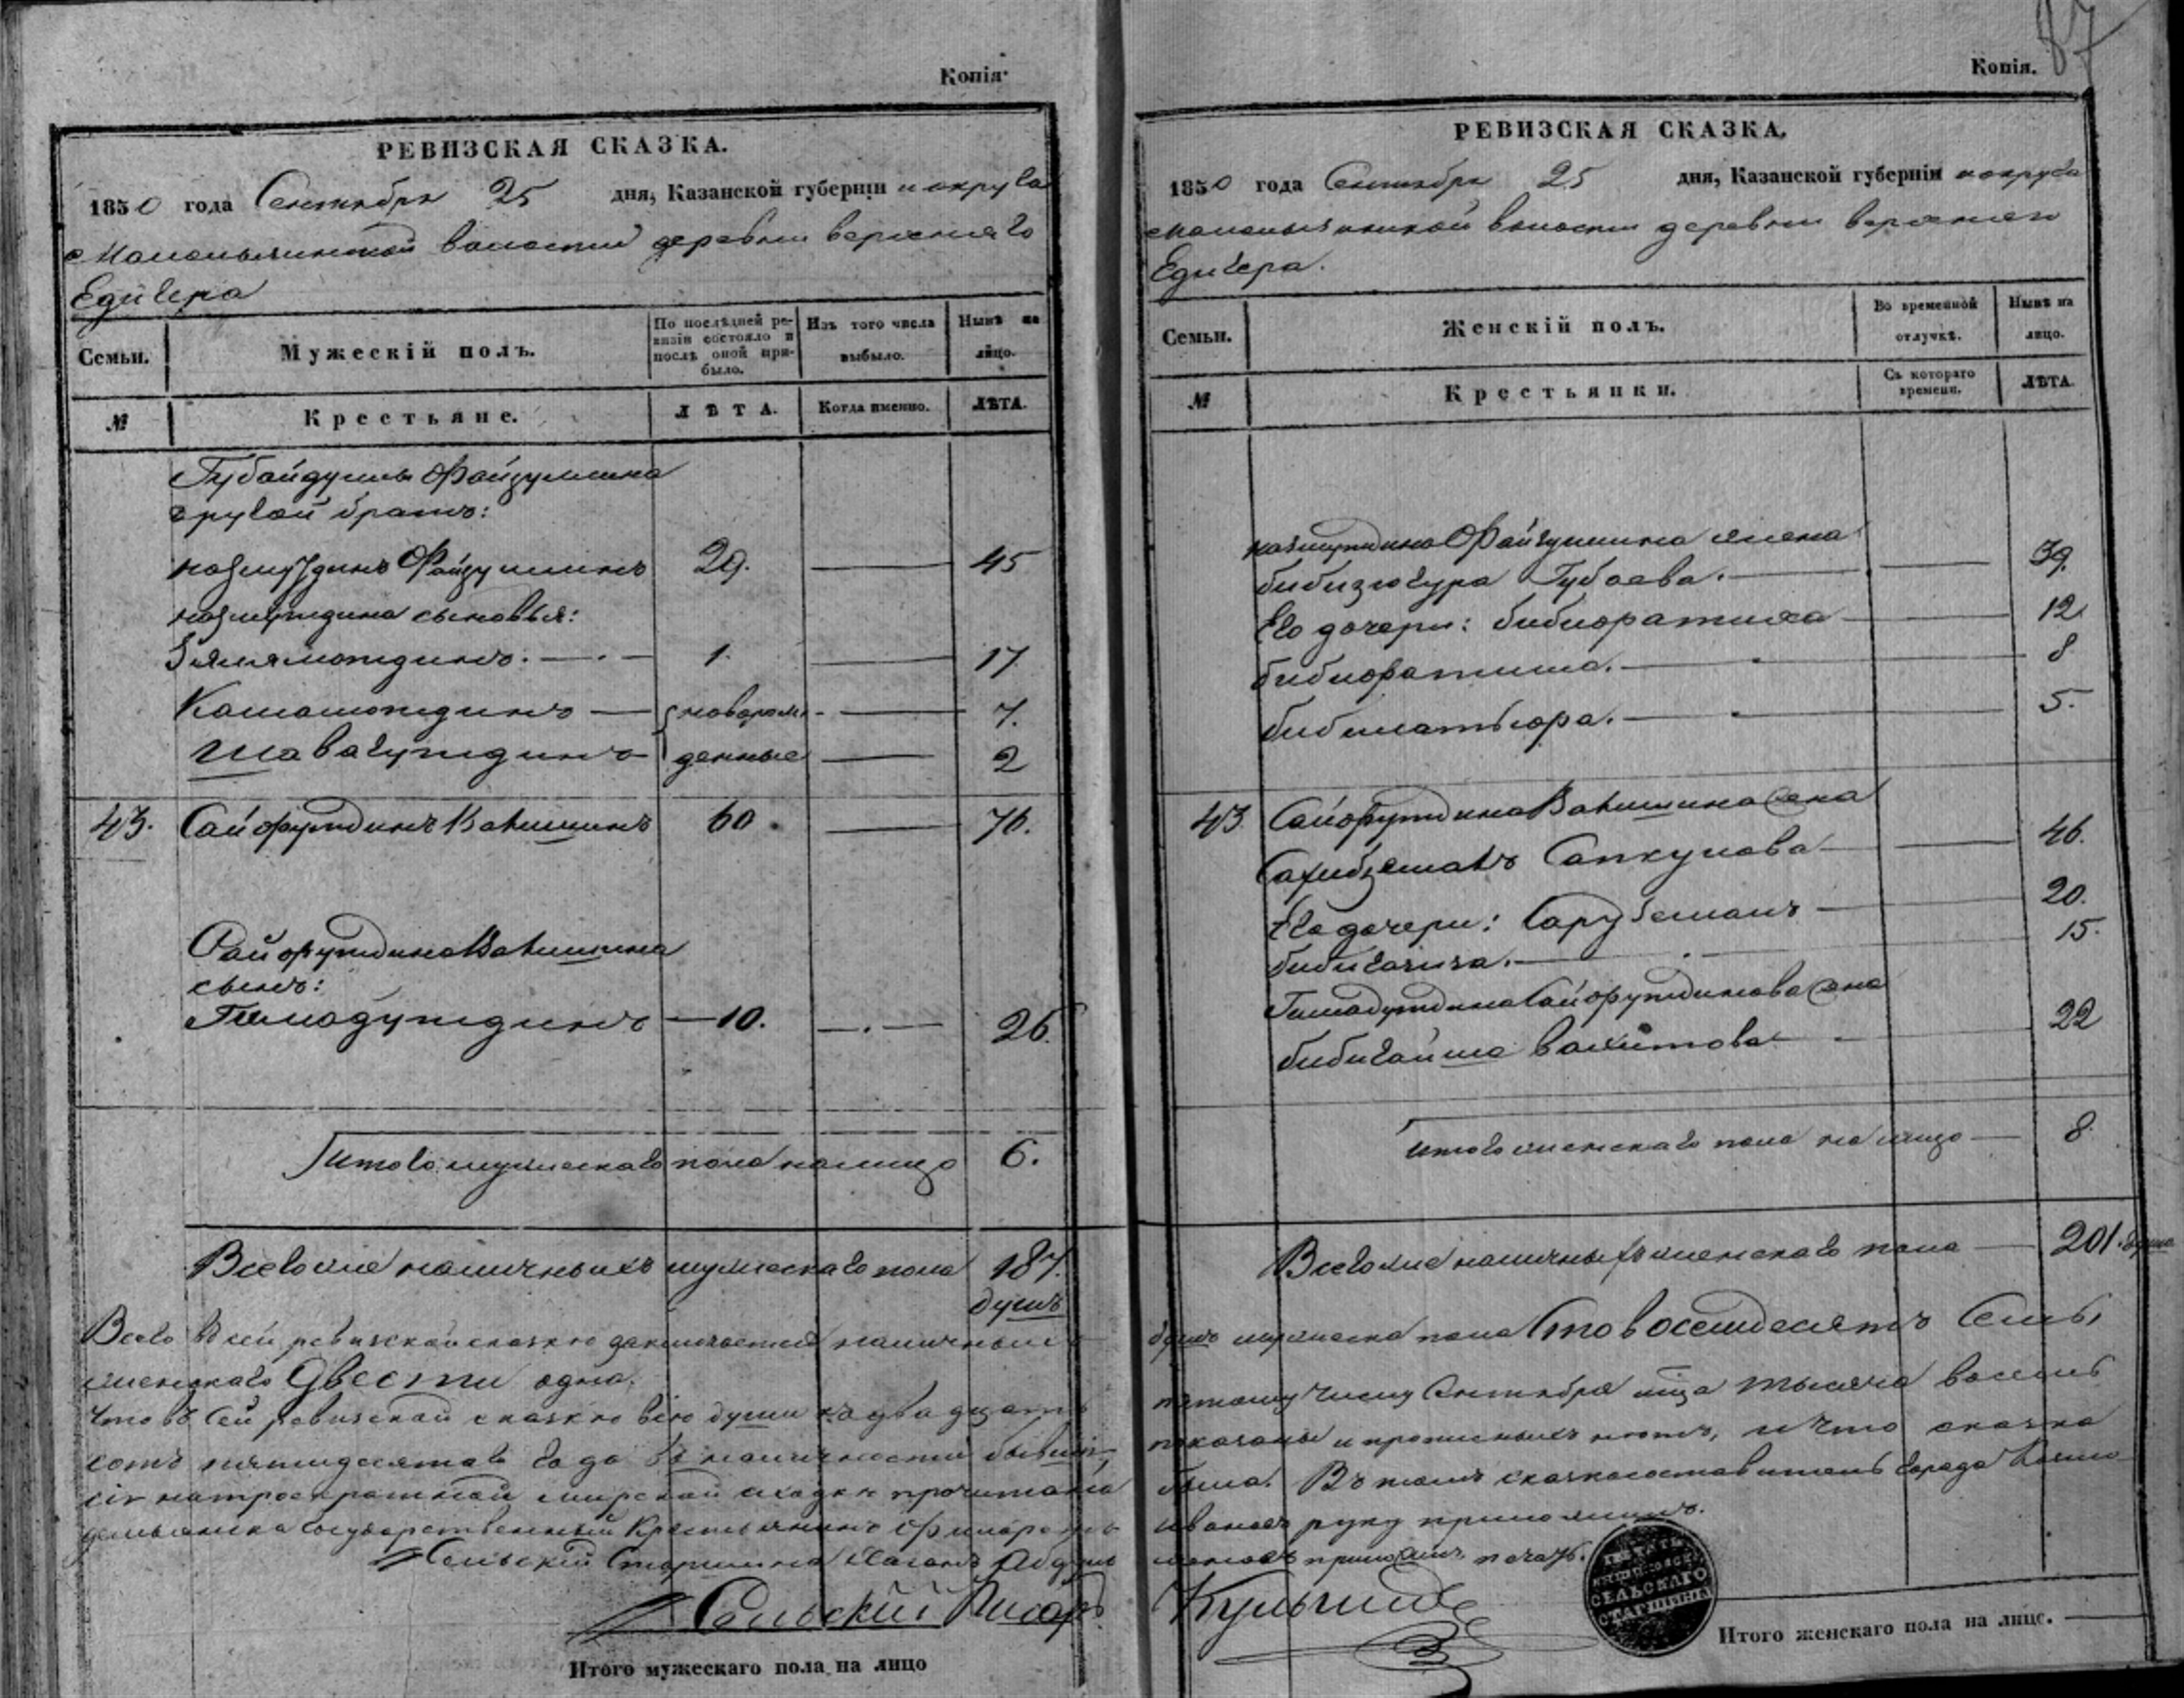 Копія.
РЕВИЗСКАЯ СКАЗКА.
1850 года Сентября 25 дня, Казанской губерніи и округа
волости деревни верхняго
Едигера
Семьи.
Мужескій полъ.
По послѣдней ре-
визіи состояло и
послѣ оной при-
было.
Изъ того числа
выбыло.
Нынѣ на
лицо.
№
Крестьяне.
ЛѢТА.
Когда именно.
ЛѢТА.
Губайдуллы Файзуллина
другой братъ:
Назмутдинъ Файзуллинъ 29. 45
Назмутдина сыновья:
1. 17
Камалютдинъ новорож- 7.
Шавагутдинъ денные 2
43. Сайфутдинъ Вагишинъ 60. 76.
Сайфутдина Вагишина
сынъ:
Гимадутдинъ 10. 26.
Итого мужескаго пола налицо 6.
Всего же наличныхъ мужескаго пола 187.
душъ
Всего в сей ревизской сказкѣ заключается наличныхъ
женскаго Двести одна.
Что въ сей ревизской сказкѣ всѣ души къ двадцать
сотъ пятидесятаго года въ наличности бывшіе,
сія на троекратной мирской сходкѣ прочитана
Государственный Крестьянинъ Филаретъ
Сельскій Старшина Хасанъ Абдул
Сельскій Писарь
Итого мужескаго пола на лицо
87
Копія.
РЕВИЗСКАЯ СКАЗКА.
1850 года Сентября 25 дня, Казанской губерніи и округа
волости деревни верхняго
Едигера.
Семьи.
Женскій полъ.
Во временной
отлучкѣ.
Нынѣ на
лицо.
№
Крестьянки.
Съ котораго
времени.
ЛѢТА.
Назмутдина Файзуллина жена
Бибизюгура Губаева. 39.
Его дочери: бибифатиха 12
бибифатима. 8
5.
43 Сайфутдина Вагишина жена
Сапкулова 46.
Его дочери: 20.
15.
Гимадутдина Сайфутдинова жена
бибигайша Вахитова 22
Итого женскаго пола на лицо 8.
Всего же наличныхъ женскаго пола 201. душа
душъ мужеска пола Сто восемдесятъ Семь,
пятому числу Сентября мѣсяца тысяча восемь
показаны и прописныхъ нѣтъ, и что сказка
была. Въ томъ сказкосоставитель города Казани
Ивановъ руку приложилъ.
приложилъ печать.
ПЕЧАТЬ
СЕЛЬСКАГО
СТАРШИНЫ
Итого женскаго пола на лице.